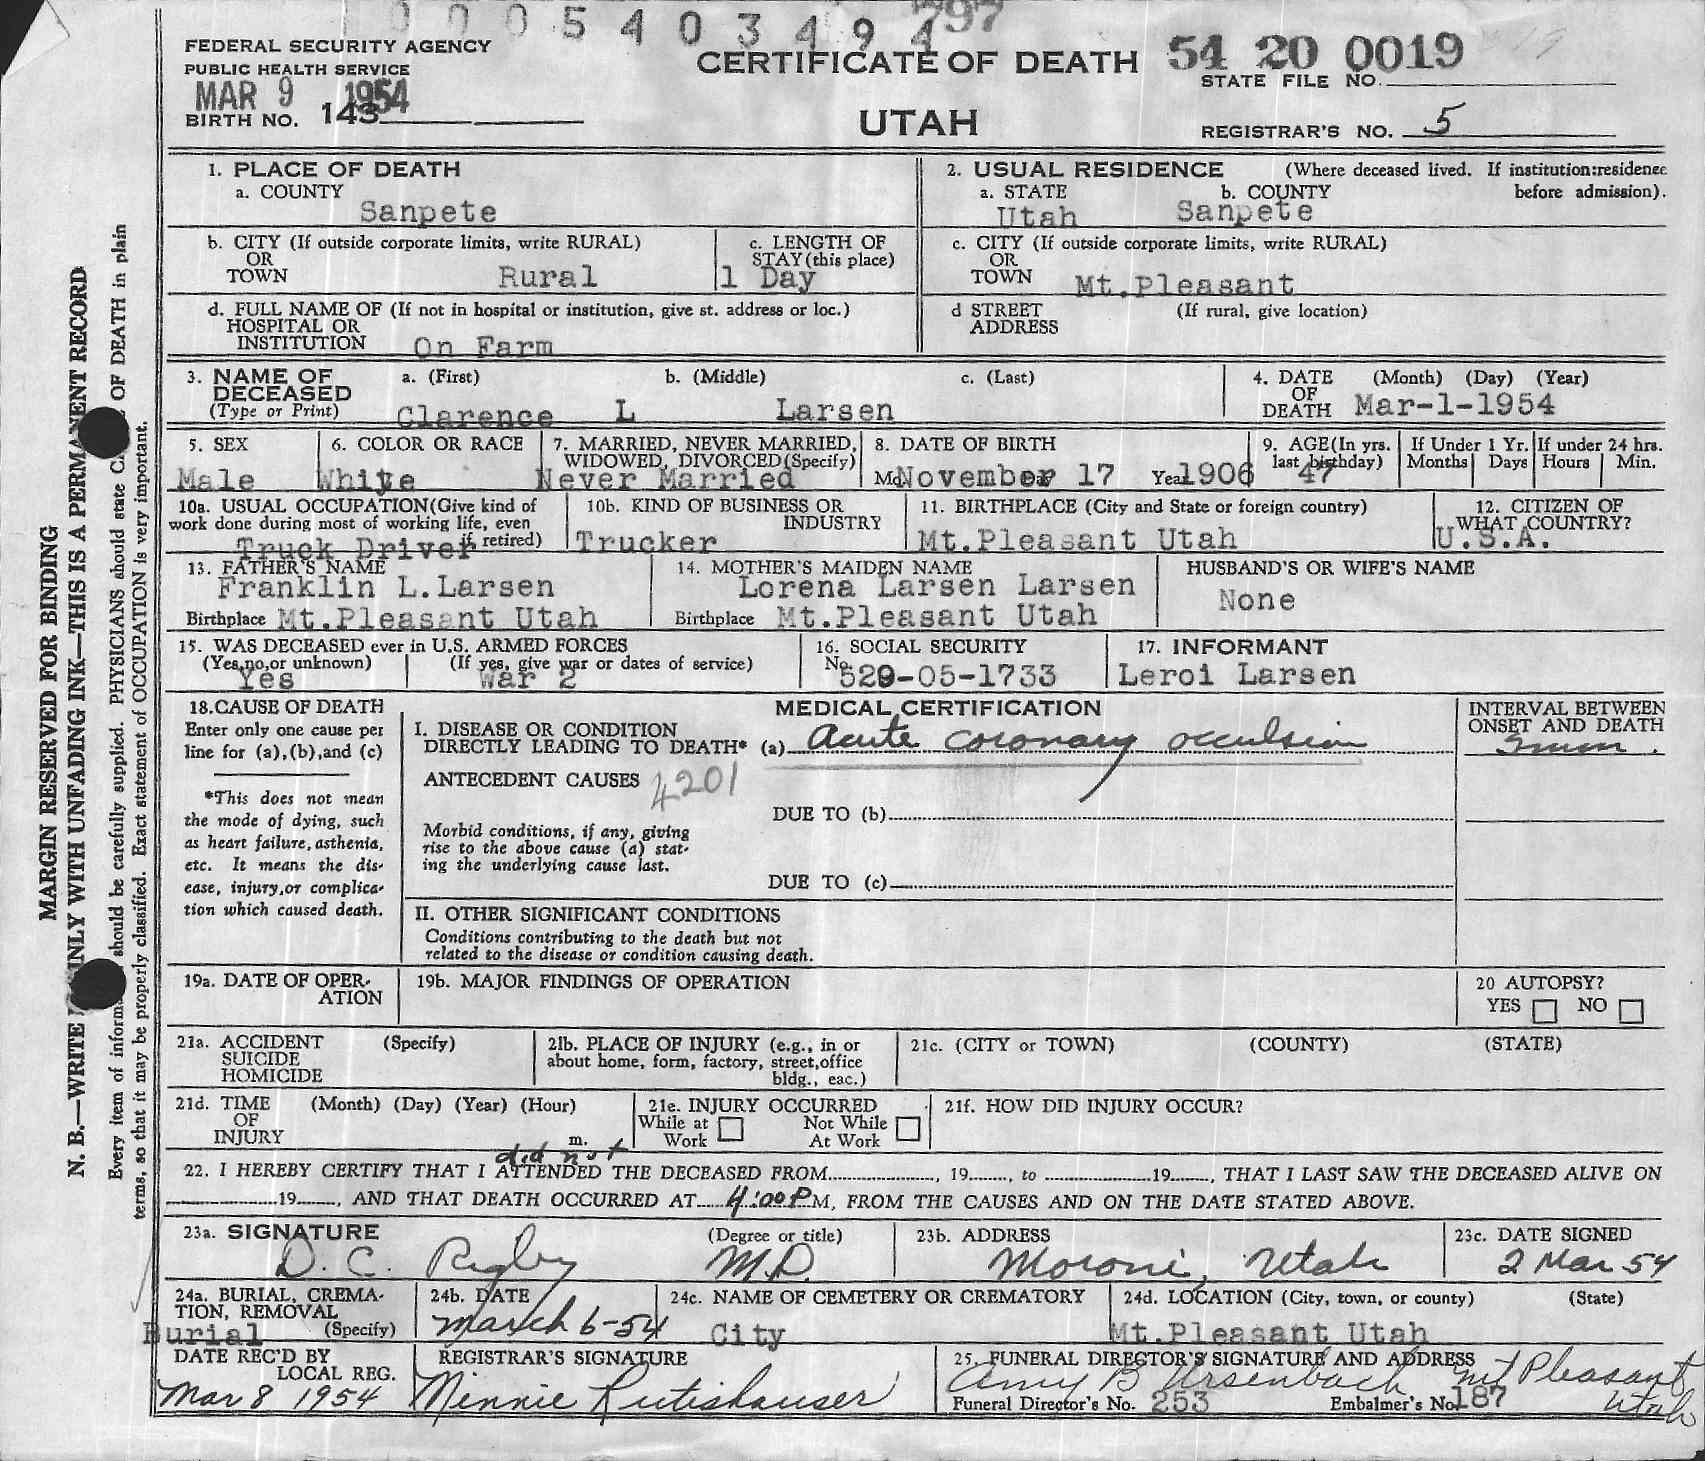 0005403494
797
FEDERAL SECURITY AGENCY
PUBLIC HEALTH SERVICE
MAR 9 1954
BIRTH NO. 143
CERTIFICATE OF DEATH
UTAH
54 20 0019
STATE FILE NO.
REGISTRAR'S NO. 5
1. PLACE OF DEATH
a. COUNTY
Sanpete
2. USUAL RESIDENCE (Where deceased lived. If institution:residence
a. STATE b. COUNTY before admission).
Utah Sanpete
b. CITY (If outside corporate limits, write RURAL)
OR
TOWN Rural
c. LENGTH OF
STAY (this place)
1 Day
c. CITY (If outside corporate limits, write RURAL)
OR
TOWN Mt.Pleasant
d. FULL NAME OF (If not in hospital or institution, give st. address or loc.)
HOSPITAL OR
INSTITUTION On Farm
d STREET (If rural, give location)
ADDRESS
3. NAME OF a. (First) b. (Middle) c. (Last)
DECEASED
(Type or Print) Clarence L Larsen
4. DATE (Month) (Day) (Year)
OF
DEATH Mar-1-1954
5. SEX
Male
6. COLOR OR RACE
White
7. MARRIED, NEVER MARRIED,
WIDOWED, DIVORCED(Specify)
Never Married
8. DATE OF BIRTH
November 17 Year 1906
9. AGE(In yrs.
last birthday)
47
If Under 1 Yr.
Months Days
If under 24 hrs.
Hours Min.
10a. USUAL OCCUPATION(Give kind of
work done during most of working life, even
if retired)
Truck Driver
10b. KIND OF BUSINESS OR
INDUSTRY
Trucker
11. BIRTHPLACE (City and State or foreign country)
Mt.Pleasant Utah
12. CITIZEN OF
WHAT COUNTRY?
U.S.A.
13. FATHER'S NAME
Franklin L.Larsen
Birthplace Mt.Pleasant Utah
14. MOTHER'S MAIDEN NAME
Lorena Larsen Larsen
Birthplace Mt.Pleasant Utah
HUSBAND'S OR WIFE'S NAME
None
15. WAS DECEASED ever in U.S. ARMED FORCES
(Yes,no,or unknown) (If yes, give war or dates of service)
Yes War 2
16. SOCIAL SECURITY
No. 529-05-1733
17. INFORMANT
Leroi Larsen
18.CAUSE OF DEATH
Enter only one cause per
line for (a),(b),and (c)
*This does not mean
the mode of dying, such
as heart failure, asthenia,
etc. It means the dis-
ease, injury,or complica-
tion which caused death.
MEDICAL CERTIFICATION
I. DISEASE OR CONDITION
DIRECTLY LEADING TO DEATH* (a) acute coronary occulsion
ANTECEDENT CAUSES 4201
DUE TO (b)
Morbid conditions, if any, giving
rise to the above cause (a) stat-
ing the underlying cause last.
DUE TO (c)
II. OTHER SIGNIFICANT CONDITIONS
Conditions contributing to the death but not
related to the disease or condition causing death.
INTERVAL BETWEEN
ONSET AND DEATH
19a. DATE OF OPER-
ATION
19b. MAJOR FINDINGS OF OPERATION
20 AUTOPSY?
YES NO
21a. ACCIDENT (Specify)
SUICIDE
HOMICIDE
21b. PLACE OF INJURY (e.g., in or
about home, form, factory, street,office
bldg., eac.)
21c. (CITY or TOWN) (COUNTY) (STATE)
21d. TIME (Month) (Day) (Year) (Hour)
OF
INJURY m.
21e. INJURY OCCURRED
While at Not While
Work At Work
21f. HOW DID INJURY OCCUR?
did not
22. I HEREBY CERTIFY THAT I ATTENDED THE DECEASED FROM, 19, to 19, THAT I LAST SAW THE DECEASED ALIVE ON
19, AND THAT DEATH OCCURRED AT 4:00 P M, FROM THE CAUSES AND ON THE DATE STATED ABOVE.
23a. SIGNATURE (Degree or title)
D. C. Rigby M.D.
23b. ADDRESS
Moroni, Utah
23c. DATE SIGNED
2 Mar 54
24a. BURIAL, CREMA-
TION, REMOVAL
(Specify)
Burial
24b. DATE
March 6-54
24c. NAME OF CEMETERY OR CREMATORY
City
24d. LOCATION (City, town, or county) (State)
Mt.Pleasant Utah
DATE REC'D BY
LOCAL REG.
Mar 8 1954
REGISTRAR'S SIGNATURE
Minnie Rutishauser
25. FUNERAL DIRECTOR'S SIGNATURE AND ADDRESS
Amy B Ursenbach Mt Pleasant
Utah
Funeral Director's No. 253 Embalmer's No. 187
MARGIN RESERVED FOR BINDING
N. B.—WRITE INLY WITH UNFADING INK—THIS IS A PERMANENT RECORD
Every item of inform should be carefully supplied. PHYSICIANS should state C OF DEATH in plain
terms, so that it may be properly classified. Exact statement of OCCUPATION is very important.